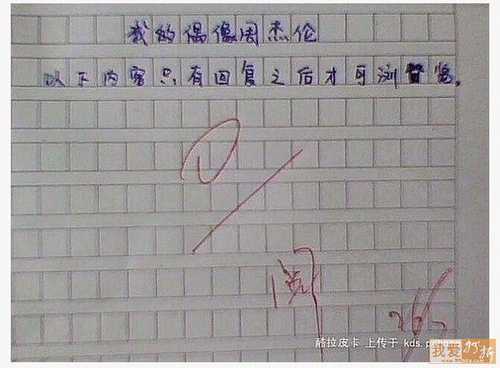 我的偶像周杰伦
以下内容只有回复之后才可浏览。
阅
酷拉皮卡 上传于 kds.p
我爱